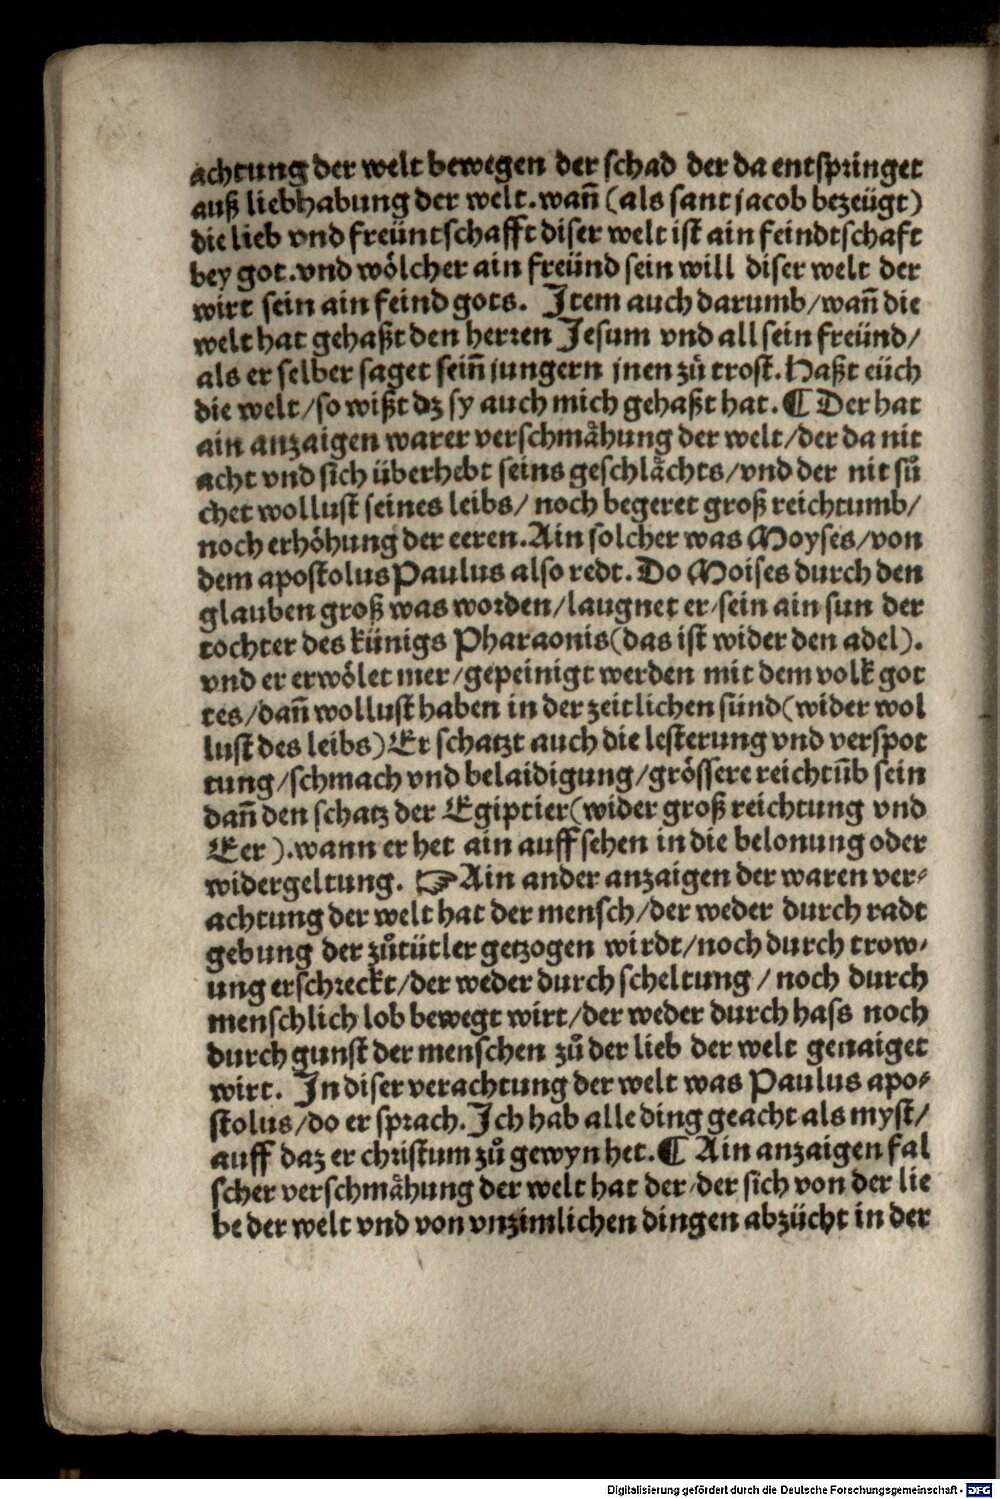 achtung der welt bewegen der schad der da entspringet
auß liebhabung der welt. wañ (als sant jacob bezeügt)
die lieb vnd freüntschafft diser welt ist ain feindtschaft
bey got. vnd wölcher ain freünd sein will diser welt der
wirt sein ain feind gots. Item auch darumb/wañ die
welt hat gehaßt den herren Jesum vnd all sein freünd/
als er selber saget seiñ jungern jnen zů trost. Haßt eüch
die welt/so wißt dz sy auch mich gehaßt hat. ¶ Der hat
ain anzaigen warer verschmåhung der welt/der da nit
acht vnd sich überhebt seins geschlåchts/vnd der nit sů
chet wollust seines leibs/ noch begeret groß reichtumb/
noch erhöhung der eeren. Ain solcher was Moyses/von
dem apostolus Paulus also redt. Do Moises durch den
glauben groß was worden/laugnet er/sein ain sun der
tochter des künigs Pharaonis(das ist wider den adel).
vnd er erwölet mer/gepeinigt werden mit dem volk got
tes/dañ wollust haben in der zeitlichen sünd(wider wol
lust des leibs) Er schatzt auch die lesterung vnd verspot
tung/schmach vnd belaidigung/grössere reichtūb sein
dañ den schatz der Egiptier(wider groß reichtung vnd
Eer ). wann er het ain auff sehen in die belonung oder
widergeltung. ☞ Ain ander anzaigen der waren ver⸗
achtung der welt hat der mensch/der weder durch radt
gebung der zůtütler getzogen wirdt/noch durch trow⸗
ung erschreckt/der weder durch scheltung / noch durch
menschlich lob bewegt wirt/der weder durch hass noch
durch gunst der menschen zů der lieb der welt genaiget
wirt. In diser verachtung der welt was Paulus apo⸗
stolus/do er sprach. Ich hab alle ding geacht als myst/
auff daz er christum zů gewyn het. ¶ Ain anzaigen fal
scher verschmåhung der welt hat der/der sich von der lie
be der welt vnd von vnzimlichen dingen abzücht in der
Digitalisierung gefördert durch die Deutsche Forschungsgemeinschaft - DFG